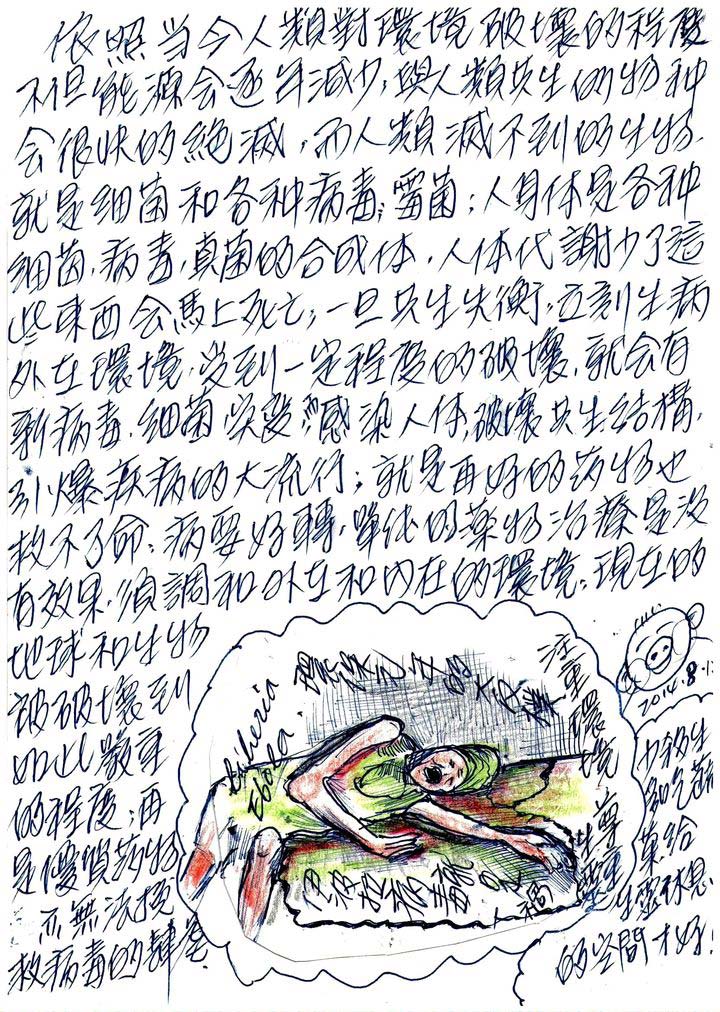 依照当今人類對環境破壞的程度
不但能源会逐年減少,與人類共生的物种
会很快的絕滅,而人類滅不到的生物
就是细菌和各种病毒,霉菌;人身体是各种
细菌,病毒,真菌的合成体,人体代謝少了這
些東西会馬上死亡,一旦共生失衡,立刻生病
外在環境,受到一定程度的破壞,就会有
新病毒,细菌突變感染人体,破壞共生结構,
引爆疾病的大流行;就是再好的药物也
救不了命;病要好轉,單純的藥物治療是没
有效果,須調和外在和内在的環境,現在的
地球和生物
被破壞到
如此嚴重
的程度;再
是優質药物
亦無法挽
救病毒的肆虐.
Liberia
Ebola.
注重環境
尊重
2014.8.1
少殺生
給
生靈休息
的空間才好!